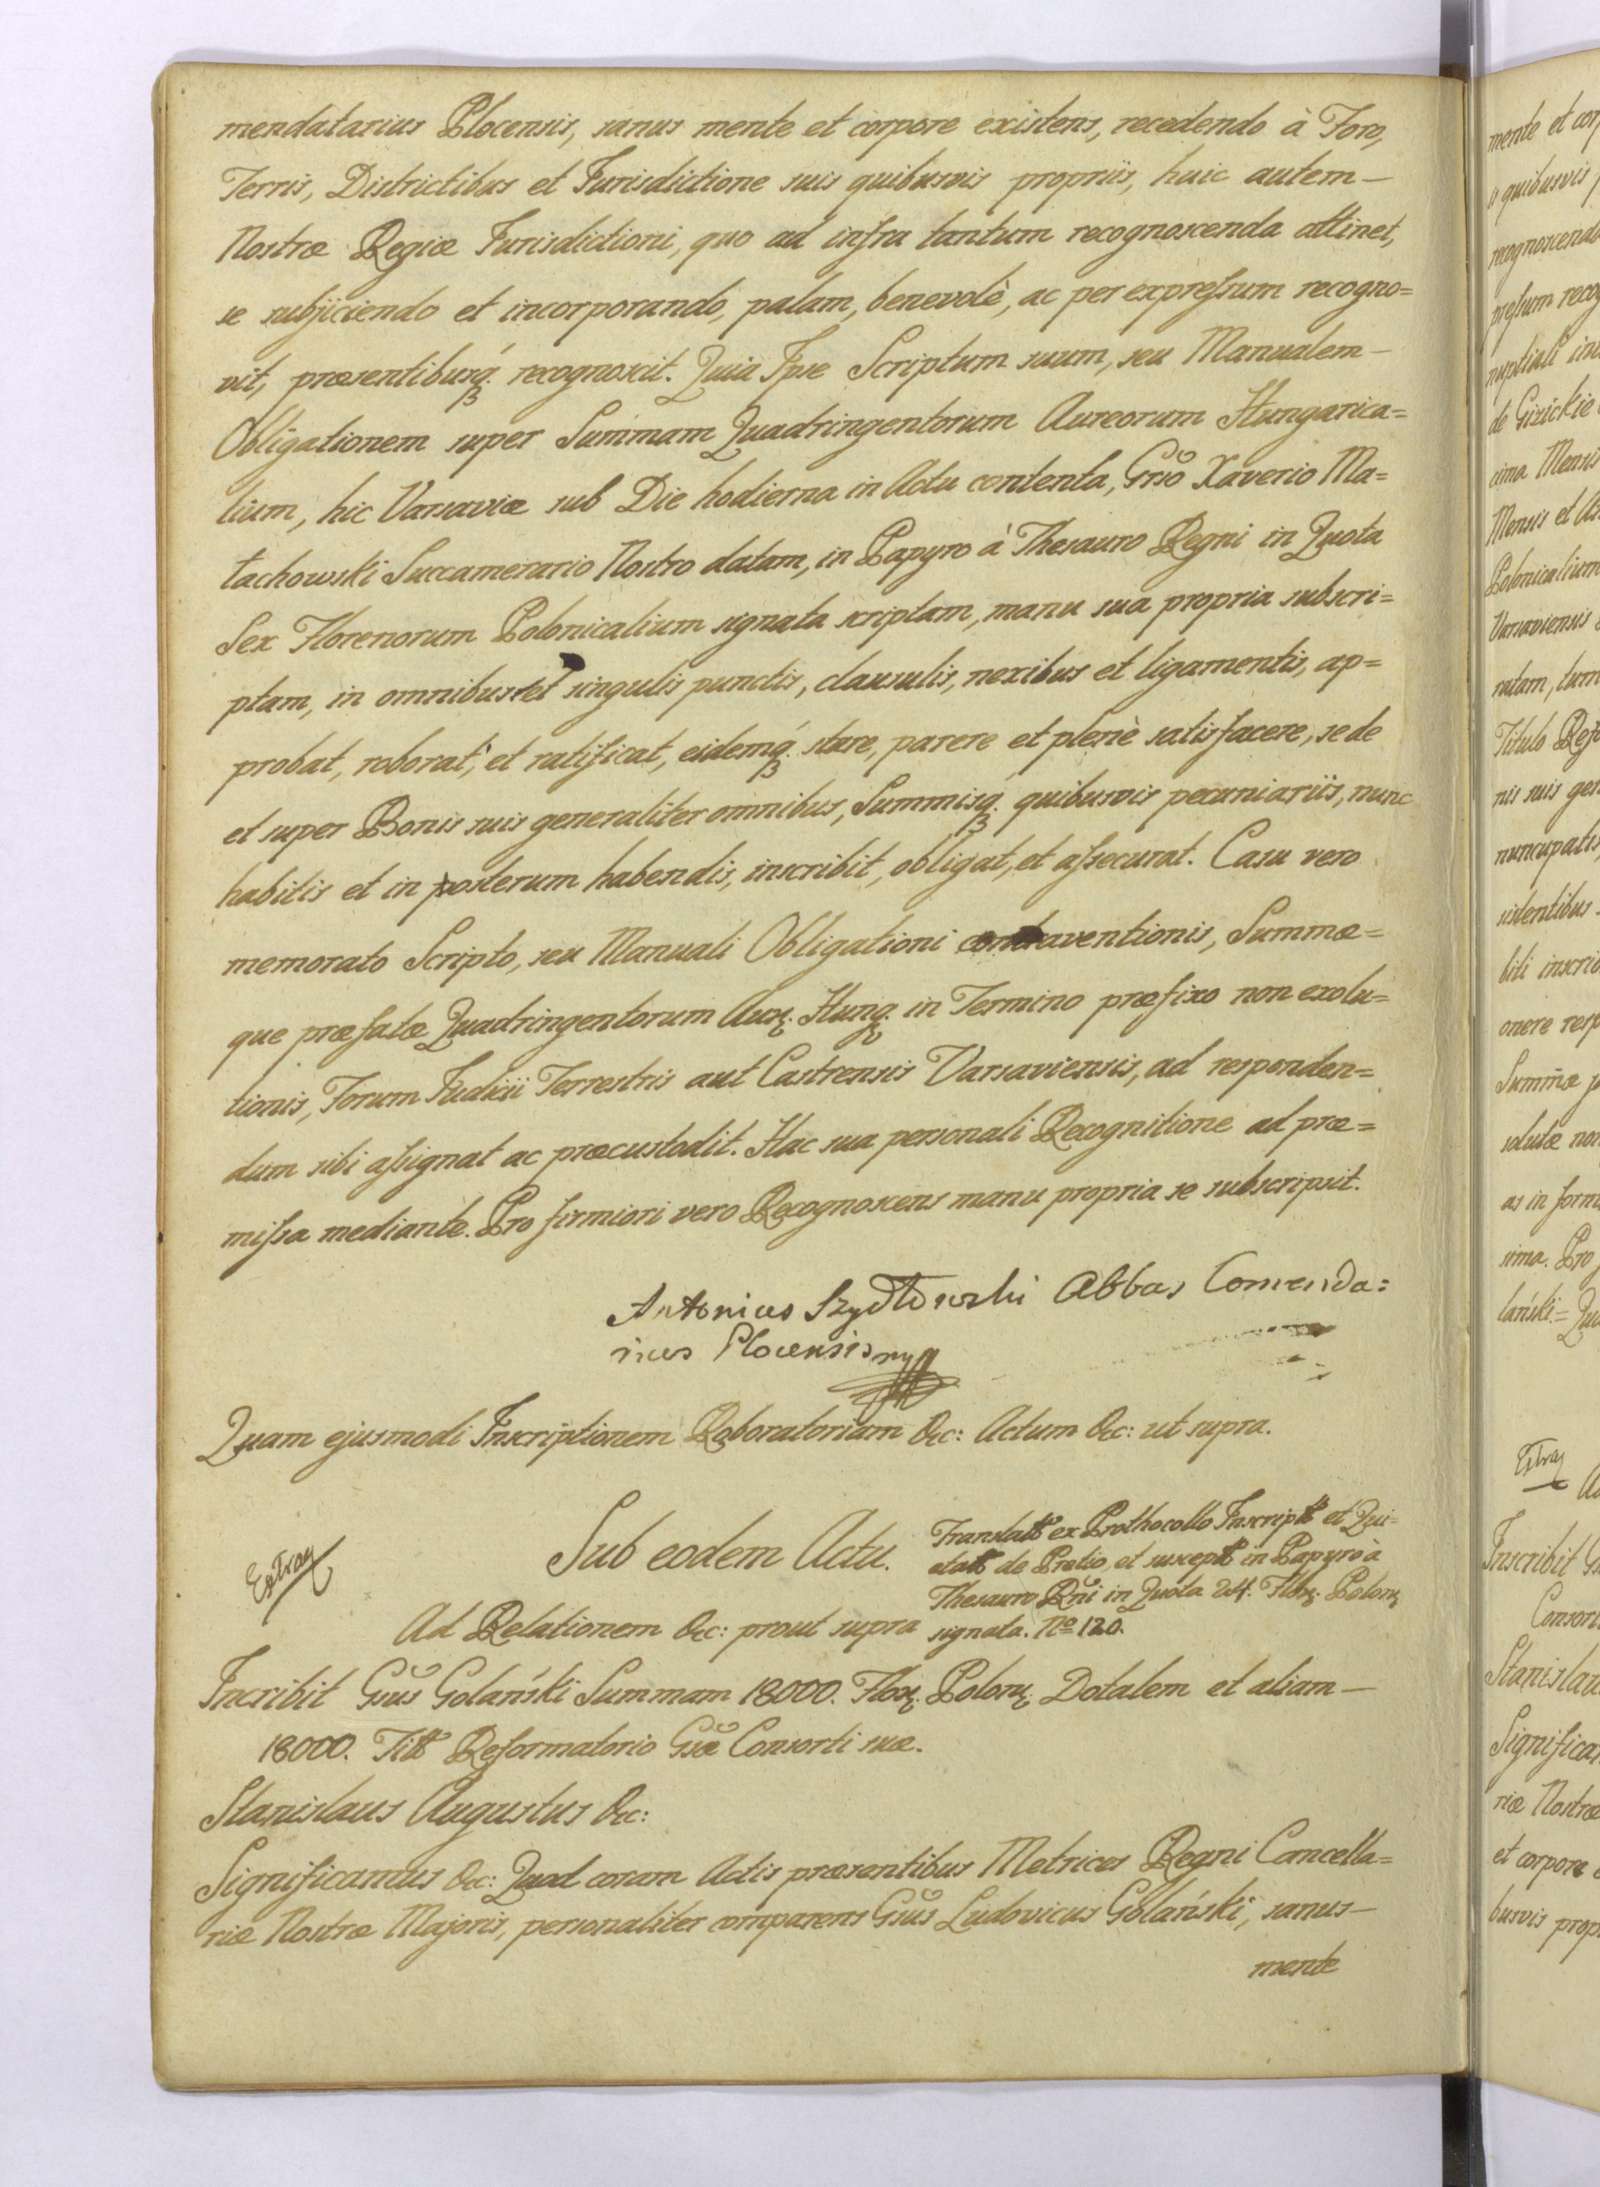 mendatarius Plocensis, sanus mente et corpore existens, recedendo à Foro,
Terris, Districtibus et Jurisdictione suis quibusvis propriis, huic autem —
Nostræ Regiæ Jurisdictioni, quo ad infra tantum recognoscenda attinet,
se subjiciendo et incorporando, palam, benevolè, ac per expressum recogno=
vit, præsentibusq́ꝫ. recognoscit. Quia Ipse Scriptum suum, seu Manualem —
Obligationem super Summam Quadringentorum Aureorum Hungarica=
lium, hic Varsaviæ sub Die hodierna in Actu contenta, Grso Xaverio Ma=
tachowski Succamerario Nostro datam, in Papyro à Thesauro Regni in Quota
Sex Florenorum Polonicalium signata scriptam, manu sua propria subscri=
ptam, in omnibus et singulis punctis, clausulis, nexibus et ligamentis, ap=
probat, roborat, et ratificat, eidemq́ꝫ. stare, parere et plenè satisfacere, se de
et super Bonis suis generaliter omnibus, Summisqꝫ. quibusvis pecuniariis, nunc
habitis et in posterum habendis, inscribit, obligat, et assecurat. Casu vero
memorato Scripto, seu Manuali Obligationi contraventionis, Summæ=
que præfatæ Quadringentorum Aurꝝ. Hung. in Termino præfixo non exolu=
tionis, Forum Judicii Terrestris aut Castrensis Varsaviensis, ad responden=
dum sibi assignat ac præcustodit. Hac sua personali Recognitione ad præ=
missa mediante. Pro firmiori vero Recognoscens manu propria se subscripsit.
Antonius Szydłowski Abbas Comenda:
rius Plocensis mp
Quam ejusmodi Inscriptionem Roboratoriam &c: Actum &c: ut supra.
Extrad
Sub eodem Actu.
Translatt ex Prothocollo Inscriptt et Qui=
etatt de Prætio, et suscept in Papyro à
Thesauro Rñi in Quota 24. Florꝝ. Polonꝝ
signata. No 120.
Ad Relationem &c: prout supra
Incribit Gsus Golański Summam 18000. Florꝝ. Polonꝝ. Dotalem et aliam —
18000. Titt Reformatorio Gsæ Consorti suæ.
Stanislaus Augustus &c:
Significamus &c: Quod coram Actis præsentibus Metrices Regni Cancella=
riæ Nostræ Majoris, personaliter comparens Gsus Ludovicus Golański, sanus —
mente